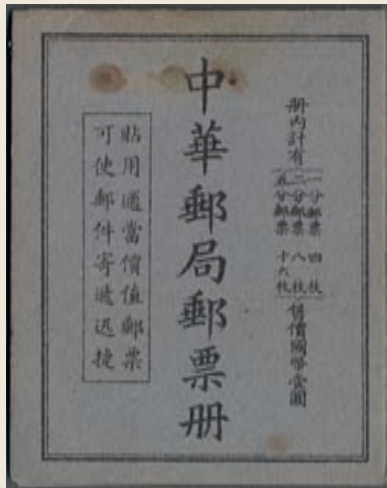 册內計有
一分郵票 四枚
二分郵票 八枚
五分郵票 十六枚
售價國幣壹圓
中華郵局郵票册
貼用適當價值郵票
可使郵件寄遞迅捷